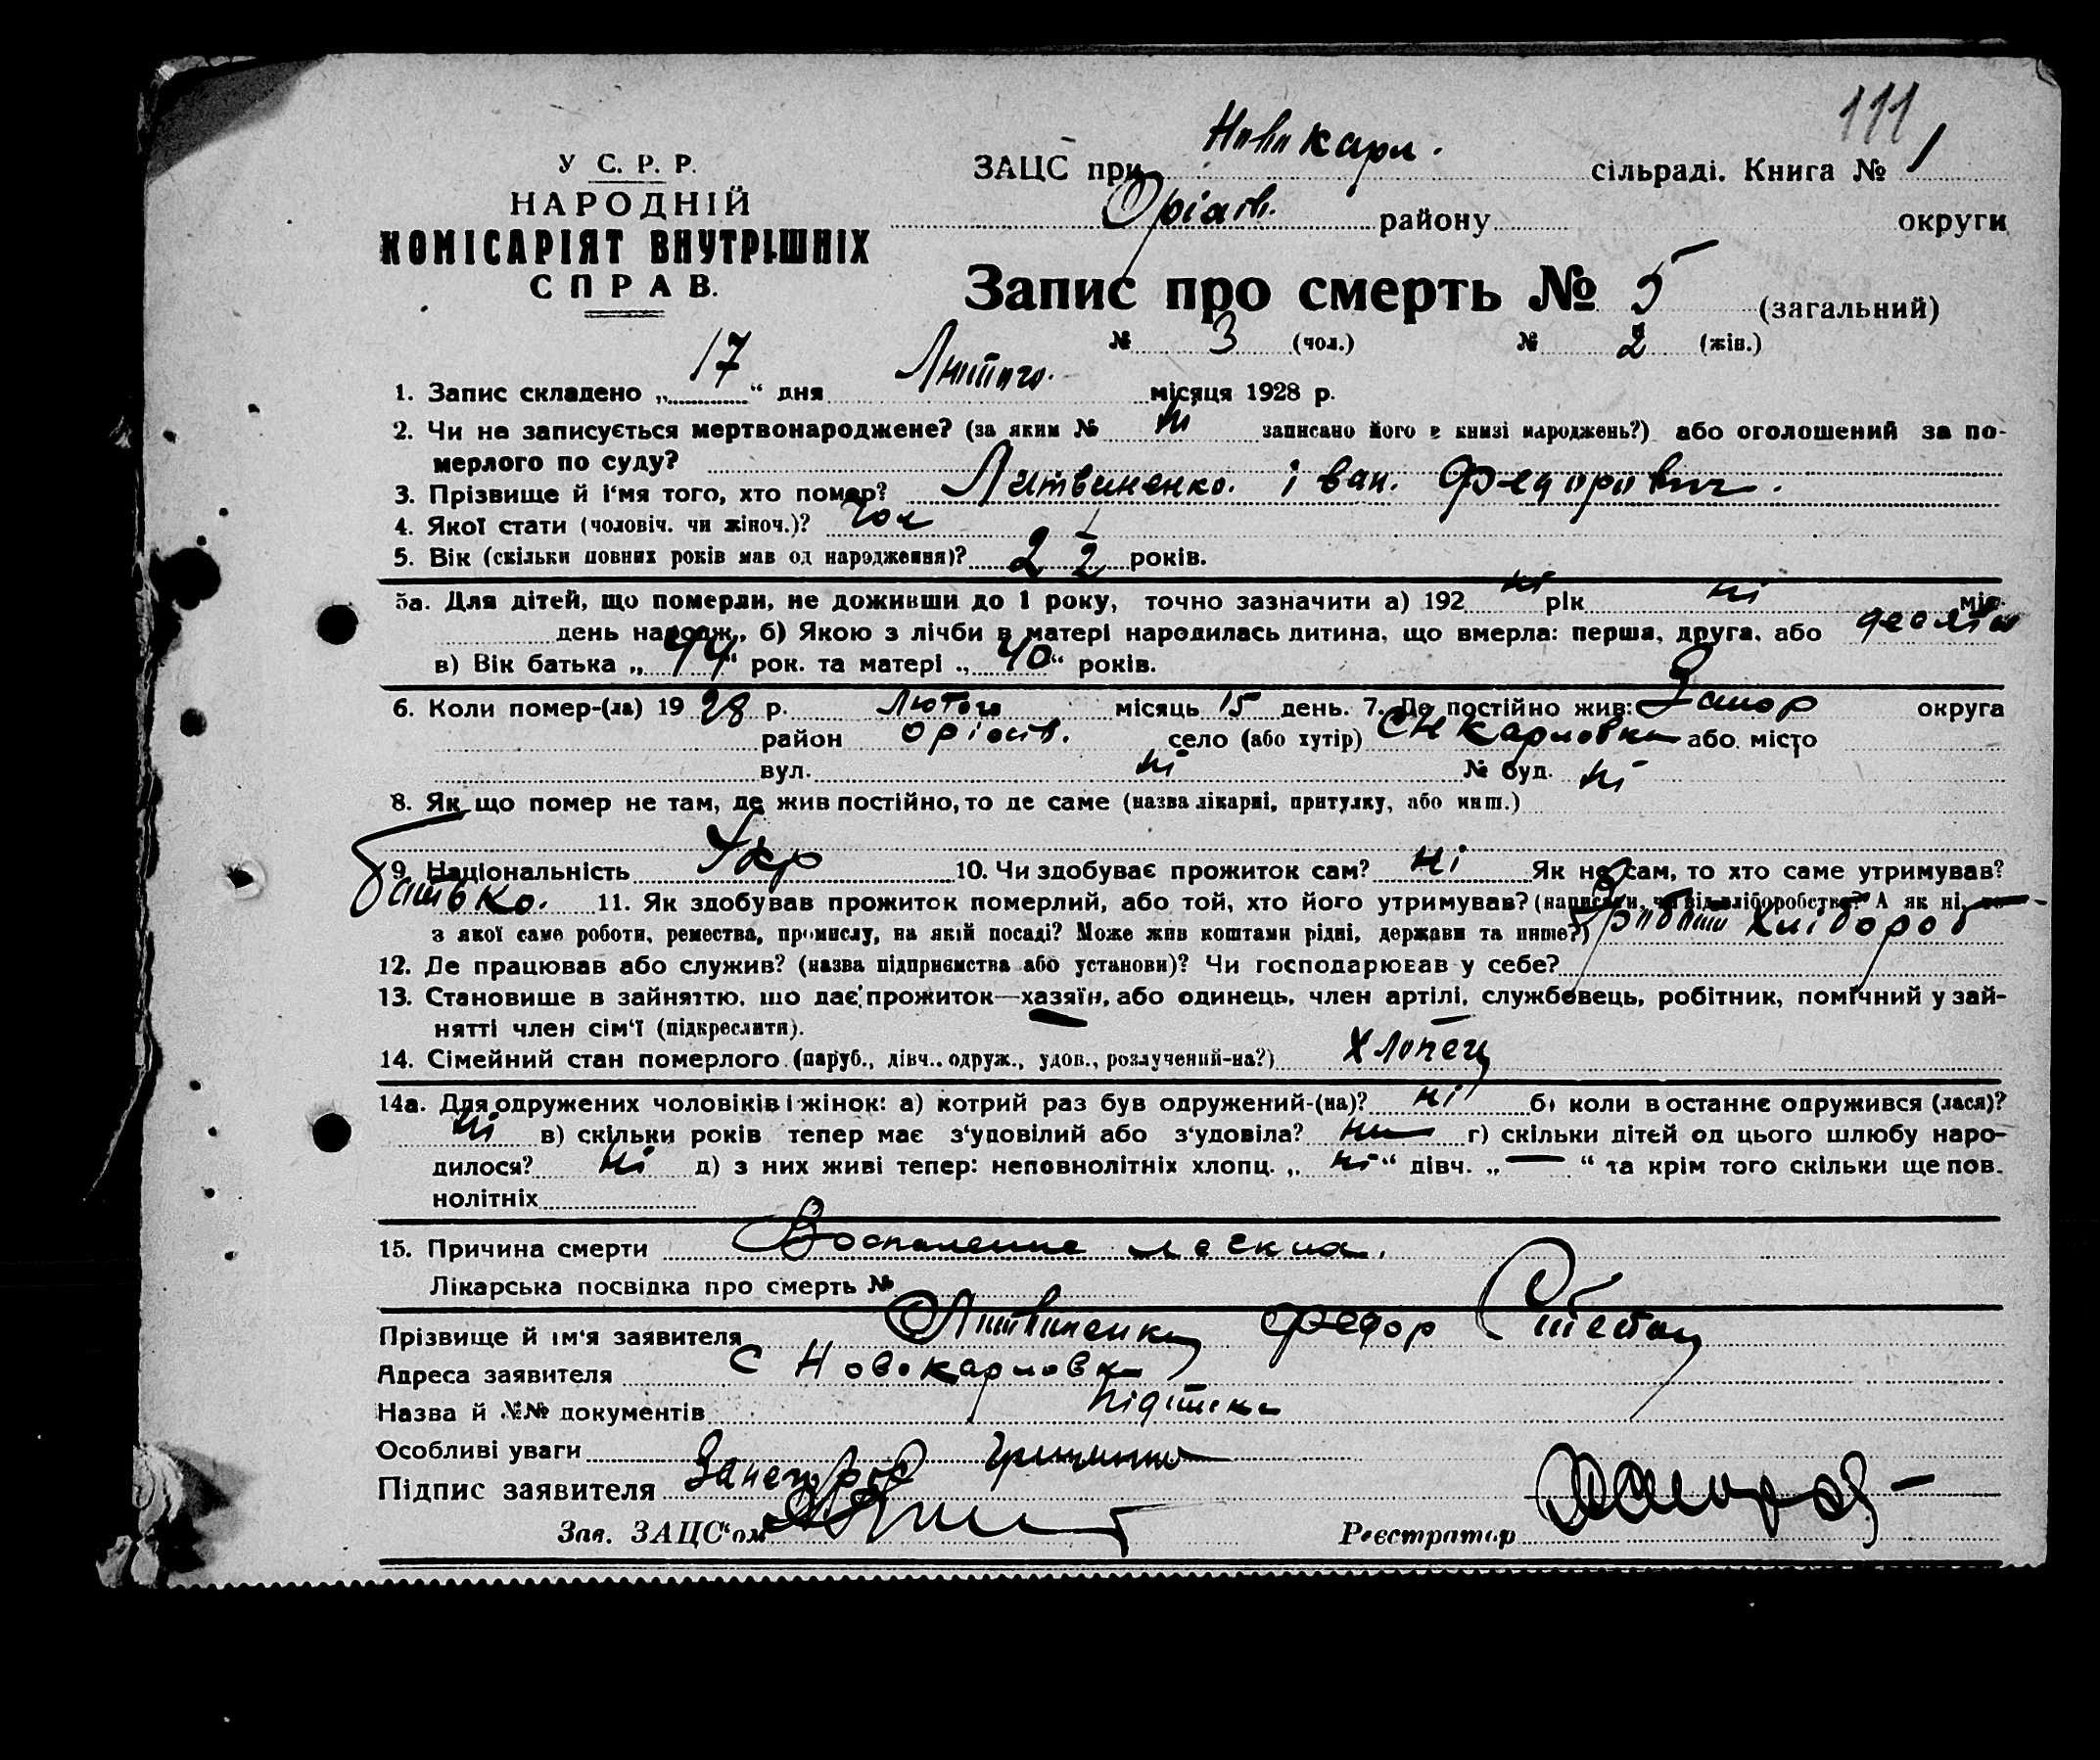 111
У С. Р. Р.
НАРОДНІЙ
КОМІСАРІЯТ ВНУТРІШНІХ
СПРАВ.
ЗАЦС при Новокарл. сільраді. Книга № 1
Оріхів. району округи
Запис про смерть № 5 (загальний)
№ 3 (чол.) № 2 (жін.)
1. Запис складено „17“ дня Лютого місяця 1928 р.
2. Чи не записується мертвонароджене? (за яким № ні записано його в книзі народжень?) або оголошений за по-
мерлого по суду?
3. Прізвище й і'мя того, хто помер? Литвиненко. Іван. Федорович.
4. Якої стати (чоловіч. чи жіноч.)? чол
5. Вік (скільки повних років мав од народження)? 2 1/2 років.
5а. Для дітей, що померли, не доживши до 1 року, точно зазначити а) 192 ні рік ні міс.
день народж., б) Якою з лічби в матері народилась дитина, що вмерла: перша, друга, або десята
в) Вік батька „44“ рок. та матері „40“ років.
6. Коли помер-(ла) 1928 р. Лютого місяць 15 день. 7. Де постійно жив: Запор округа
район Оріхів. село (або хутір) С Н Карловка або місто
вул. ні № буд. ні
8. Як що помер не там, де жив постійно, то де саме (назва лікарні, притулку, або инш.)
9. Національність Укр 10. Чи здобуває прожиток сам? ні Як не сам, то хто саме утримував?
батько. 11. Як здобував прожиток померлий, або той, хто його утримував? (написати, чи від хліборобства? А як ні, то
з якої саме роботи, ремества, промислу, на якій посаді? Може жив коштами рідні, держави та инше?) Хлібороб
12. Де працював або служив? (назва підприємства або установи)? Чи господарював у себе?
13. Становище в зайняттю, що дає прожиток—хазяїн, або одинець, член артілі, службовець, робітник, помічний у зай-
нятті член сім'ї (підкреслити).
14. Сімейний стан померлого (паруб., дівч., одруж., удов., розлучений-на?) Хлопец
14а. Для одружених чоловіків і жінок: а) котрий раз був одружений-(на)? ні б) коли в останнє одружився (лася)?
ні в) скільки років тепер має з'удовілий або з'удовіла? ни г) скільки дітей од цього шлюбу наро-
дилося? ні д) з них живі тепер: неповнолітніх хлопц. „ні“ дівч. „—“ та крім того скільки ще пов.
нолітніх
15. Причина смерти Воспаление легких.
Лікарська посвідка про смерть №
Прізвище й ім'я заявителя Литвиненко Федор Степан
Адреса заявителя С Новокарловка
Назва й №№ документів
Особливі уваги
Підпис заявителя
Зав. ЗАЦС'ом
Реєстратор